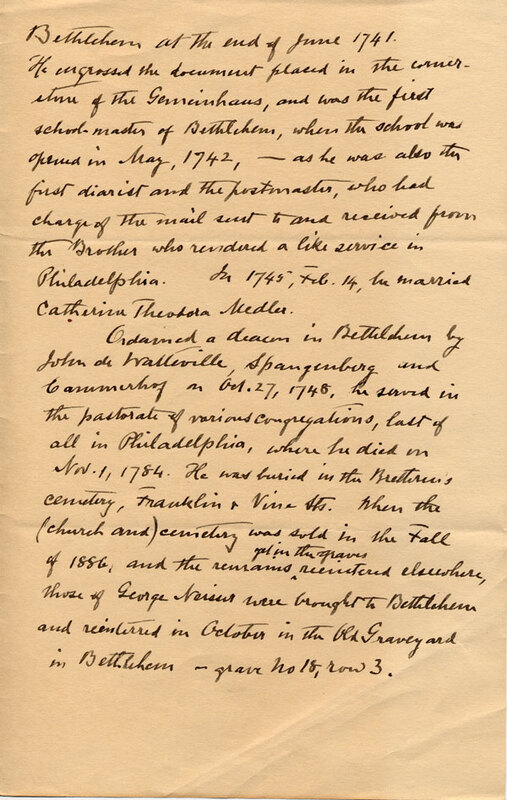 Bethlehem at the end of June 1741.
He engrossed the document placed in the corner-
stone of the Gemeinhaus, and was the first
school-master of Bethlehem, when the school was
opened in May, 1742, — as he was also the
first diarist and the postmaster, who had
charge of the mail sent to and received from
the Brother who rendered a like service in
Philadelphia. In 1745, Feb. 14, he married
Catherine Theodora Medler.
Ordained a deacon in Bethlehem by
John de Watteville, Spangenberg and
Cammerhof on Oct. 27, 1748, he served in
the pastorate of various congregations, last of
all in Philadelphia, where he died on
Nov. 1, 1784. He was buried in the Brethren's
cemetery, Franklin & Vine Sts. When the
(church and) cemetery was sold in the Fall
yet in the graves
of 1886, and the remains reinterred elsewhere,
those of George Neisser were brought to Bethlehem
and reinterred in October in the Old Graveyard
in Bethlehem — grave No 18, row 3.